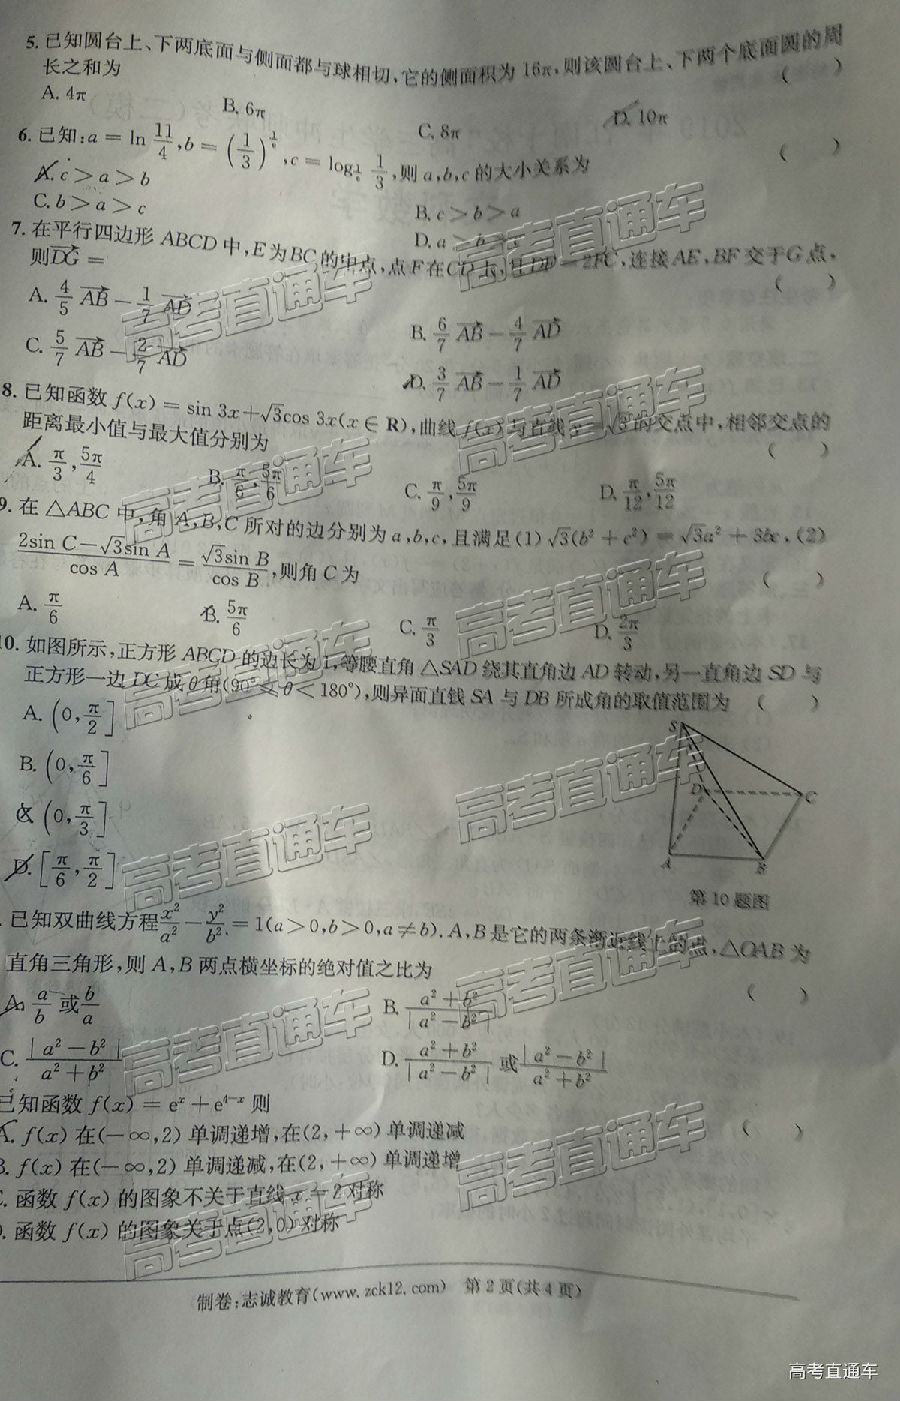 5. 已知圆台上、下两底面与侧面都与球相切,它的侧面积为 16π,则该圆台上、下两个底面圆的周
长之和为 ( )
A. 4π B. 6π C. 8π D. 10π
6. 已知:a = ln 11/4, b = (1/3)^, c = log 1/3, 则 a,b,c 的大小关系为 ( )
A. c>a>b B. c>b>a
C. b>a>c D. a>b>c
7. 在平行四边形 ABCD 中,E 为 BC 的中点,点 F 在 CD 上,且 DF=2FC,连接 AE,BF 交于 G 点,
则 DG = ( )
A. 4/5 AB − 1/7 AD B. 6/7 AB − 4/7 AD
C. 5/7 AB − 2/7 AD D. 3/7 AB − 1/7 AD
8. 已知函数 f(x) = sin 3x+√3cos 3x(x∈R),曲线 f(x) 与直线 y=√3 的交点中,相邻交点的
距离最小值与最大值分别为 ( )
A. π/3, 5π/4 B. π/6, 5π/6 C. π/9, 5π/9 D. π/12, 5π/12
9. 在 △ABC 中,角 A,B,C 所对的边分别为 a,b,c,且满足(1) √3(b²+c²) = √3a²+3bc,(2)
(2sin C−√3sin A)/cos A = √3sin B/cos B,则角 C 为 ( )
A. π/6 B. 5π/6 C. π/3 D. 2π/3
10. 如图所示,正方形 ABCD 的边长为 1,等腰直角 △SAD 绕其直角边 AD 转动,另一直角边 SD 与
正方形一边 DC 成 θ 角(90°≤θ<180°),则异面直线 SA 与 DB 所成角的取值范围为 ( )
A. (0, π/2]
B. (0, π/6]
C. (0, π/3]
D. [π/6, π/2]
S
D
C
A
B
第 10 题图
. 已知双曲线方程 x²/a² − y²/b² = 1(a>0,b>0,a≠b). A,B 是它的两条渐近线上的点,△OAB 为
直角三角形,则 A,B 两点横坐标的绝对值之比为 ( )
A. a/b 或 b/a B. (a²+b²)/|a²−b²|
C. |a²−b²|/(a²+b²) D. (a²+b²)/|a²−b²| 或 |a²−b²|/(a²+b²)
已知函数 f(x) = eˣ+e⁴⁻ˣ 则 ( )
A. f(x) 在(−∞,2) 单调递增,在(2,+∞) 单调递减
B. f(x) 在(−∞,2) 单调递减,在(2,+∞) 单调递增
C. 函数 f(x) 的图象不关于直线 x=2 对称
D. 函数 f(x) 的图象关于点(2,0) 对称
制卷:志诚教育(www.zck12.com) 第 2 页(共 4 页)
高考直通车